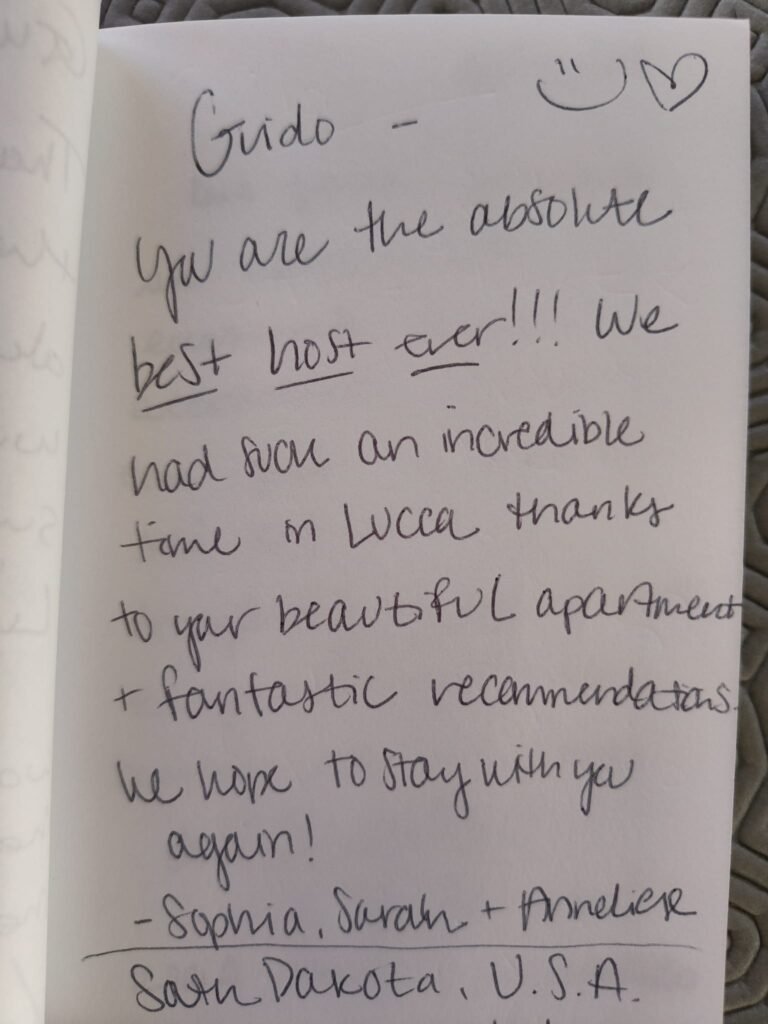 Guido -
You are the absolute
best host ever!!! We
had such an incredible
time in Lucca thanks
to your beautiful apartment
+ fantastic recommendations.
We hope to stay with you
again!
- Sophia, Sarah + Anneliese
South Dakota, U.S.A.